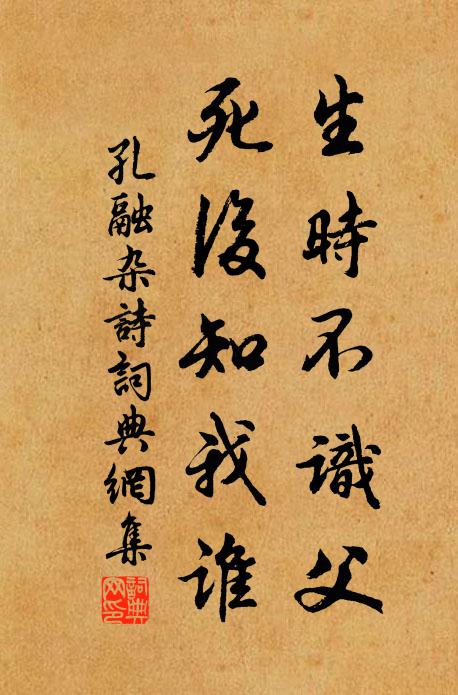 生時不識父
死後知我誰
孔融杂詩詞典網集
詞典網印